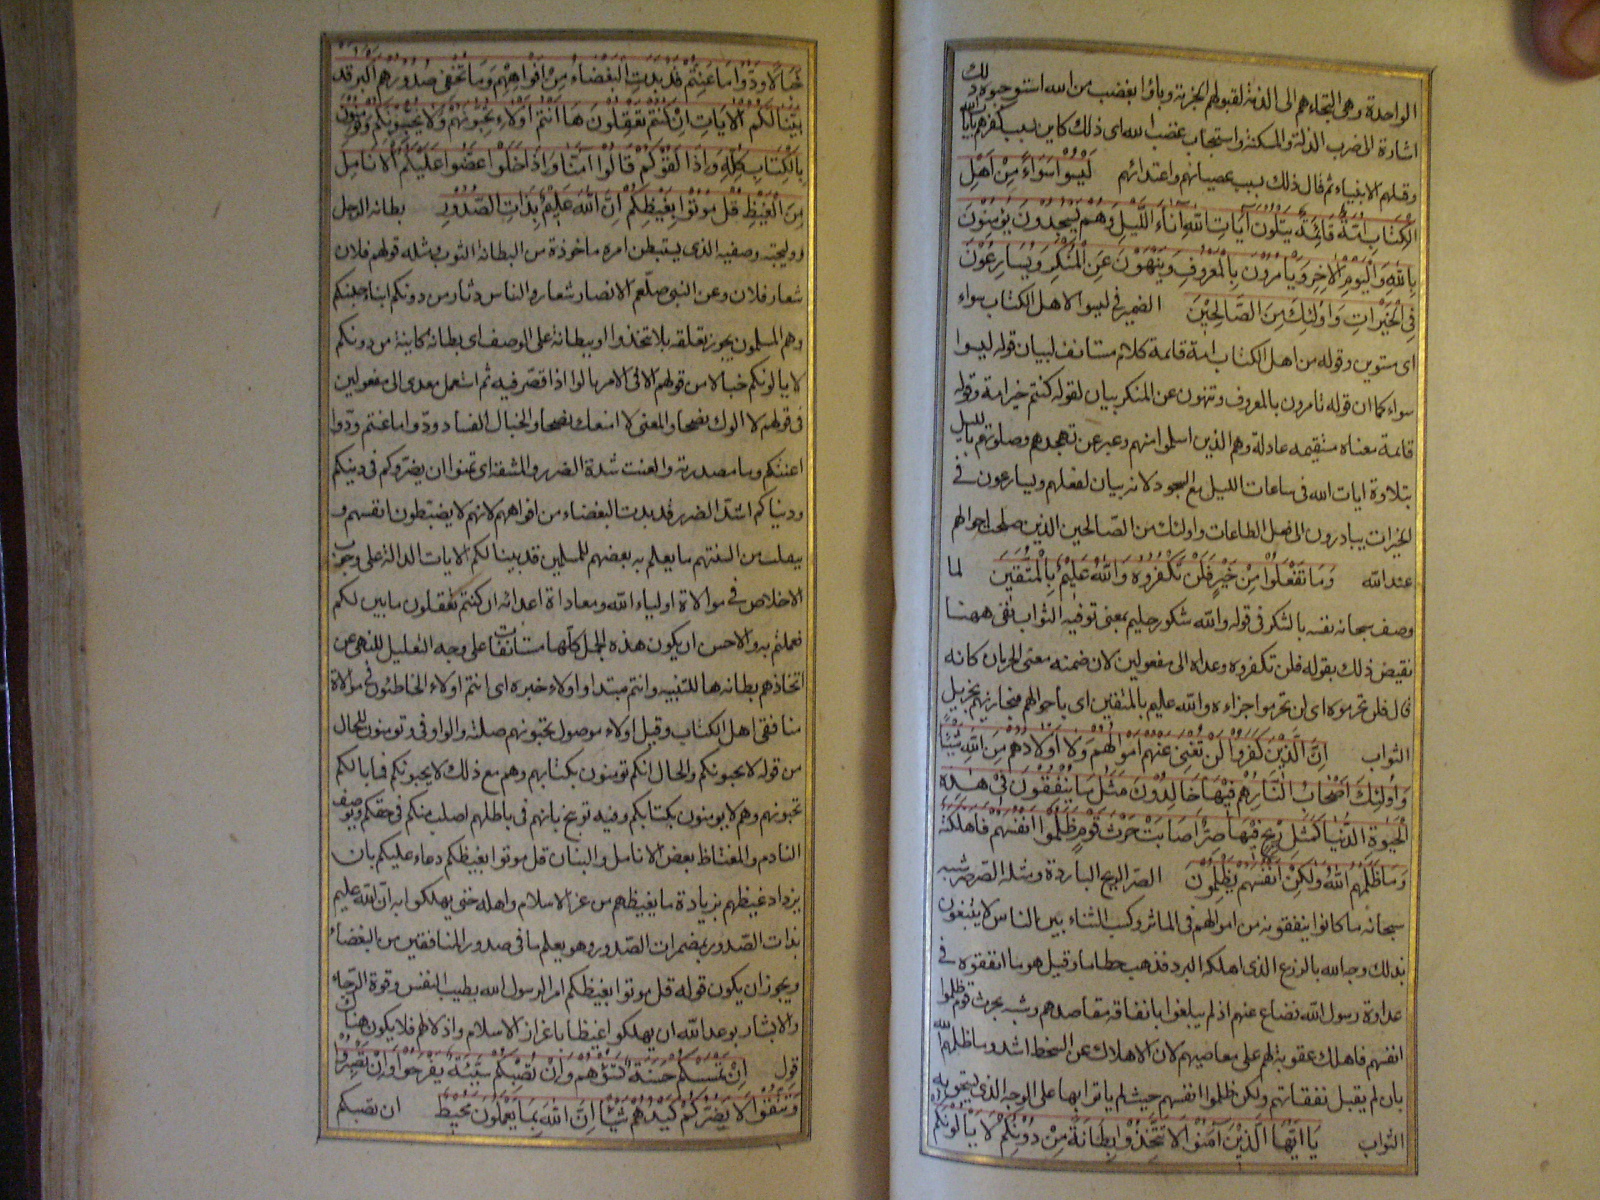 الواحدة وهى التجاءهم الى الذمة لقبولهم الجزية وباؤا بغضب من الله استوجبوه ذلك
اشارة الى ضرب الذلة والمسكنة واستيجاب غضب الله اى ذلك كاين بسبب كفرهم بآيات الله
وقتلهم الانبياء ثم قال ذلك بسبب عصيانهم واعتدائهم لَيْسُوا سَوَاءً مِنْ اَهْلِ
الْكِتَابِ اُمَّةٌ قَائِمَةٌ يَتْلُونَ آيَاتِ اللّٰهِ آنَاءَ اللَّيْلِ وَهُمْ يَسْجُدُونَ يُؤْمِنُونَ
بِاللّٰهِ وَالْيَوْمِ الْآخِرِ وَيَأْمُرُونَ بِالْمَعْرُوفِ وَيَنْهَوْنَ عَنِ الْمُنْكَرِ وَيُسَارِعُونَ
فِى الْخَيْرَاتِ وَاُولٰئِكَ مِنَ الصَّالِحِيْنَ الضمير فى ليسوا لاهل الكتاب سواء
اى مستوين وقوله من اهل الكتاب امة قائمة كلام مستانف لبيان قوله ليسوا
سواء كما ان قوله تامرون بالمعروف وتنهون عن المنكر بيان لقوله كنتم خير امة وقوله
قائمة معناه مستقيمة عادلة وهم الذين اسلموا منهم وعبر عن تهجدهم وصلوتهم بالليل
بتلاوة ايات الله فى ساعات الليل مع السجود لانه بيان لفعلهم ويسارعون فى
الخيرات يبادرون الى فعل الطاعات واولئك من الصّالحين الذين صلحت احوالهم
عند الله وَمَا تَفْعَلُوا مِنْ خَيْرٍ فَلَنْ تُكْفَرُوهُ وَاللّٰهُ عَلِيْمٌ بِالْمُتَّقِينَ لما
وصف سبحانه نفسه بالشكر فى قوله والله شكور حليم بمعنى توفية الثواب نفى ههنا
نقيض ذلك بقوله فلن تكفروه وعداه الى مفعولين لان ضمنه معنى الحرمان كانه
قال فلن تحرموه اى لن تحرموا جزاءه والله عليم بالمتقين اى باحوالهم فيجازيهم بجزيل
الثواب اِنَّ الَّذِيْنَ كَفَرُوا لَنْ تُغْنِىَ عَنْهُمْ اَمْوَالُهُمْ وَلَا اَوْلَادُهُمْ مِنَ اللّٰهِ شَيْئًا
وَاُولٰئِكَ اَصْحَابُ النَّارِ هُمْ فِيْهَا خَالِدُوْنَ مَثَلُ مَا يُنْفِقُوْنَ فِى هٰذِهِ
الْحَيٰوةِ الدُّنْيَا كَمَثَلِ رِيْحٍ فِيْهَا صِرٌّ اَصَابَتْ حَرْثَ قَوْمٍ ظَلَمُوا اَنْفُسَهُمْ فَاَهْلَكَتْهُ
وَمَا ظَلَمَهُمُ اللّٰهُ وَلٰكِنْ اَنْفُسَهُمْ يَظْلِمُونَ الصّر الريح الباردة ومثله الصرصر شبه
سبحانه ما كانوا ينفقونه من اموالهم فى المآثر وكسب الثناء بين الناس لا يبتغون
بذلك وجه الله بالزرع الذى اهلكه البرد فذهب حطاما وقيل هو ما انفقوه فى
عداوة رسول الله فضاع عنهم اذ لم يبلغوا بانفاقه مقاصدهم وشبه بحرث قوم ظلموا
انفسهم فاهلك عقوبة لهم على معاصيهم لان الاهلاك عن السخط اشد وما ظلمهم الله
بان لم يقبل نفقاتهم ولكن ظلموا انفسهم حيث لم ياتوا بها على الوجه الذى يستحق به
الثواب يَا اَيُّهَا الَّذِيْنَ آمَنُوْا لَا تَتَّخِذُوْا بِطَانَةً مِنْ دُوْنِكُمْ لَا يَأْلُونَكُمْ
خَبَالًا وَدُّوا مَا عَنِتُّمْ قَدْ بَدَتِ الْبَغْضَاءُ مِنْ اَفْوَاهِهِمْ وَمَا تُخْفِى صُدُورُهُمْ اَكْبَرُ قَدْ
بَيَّنَّا لَكُمُ الْآيَاتِ اِنْ كُنْتُمْ تَعْقِلُونَ هَا اَنْتُمْ اُولَاءِ تُحِبُّونَهُمْ وَلَا يُحِبُّونَكُمْ وَتُؤْمِنُونَ
بِالْكِتَابِ كُلِّهِ وَاِذَا لَقُوكُمْ قَالُوا آمَنَّا وَاِذَا خَلَوْا عَضُّوا عَلَيْكُمُ الْاَنَامِلَ
مِنَ الْغَيْظِ قُلْ مُوْتُوْا بِغَيْظِكُمْ اِنَّ اللّٰهَ عَلِيْمٌ بِذَاتِ الصُّدُوْرِ بطانة الرجل
ووليجته وصفيه الذى يستبطن امره ماخوذة من البطانة الثوب ومثله قولهم فلان
شعار فلان وعن النبى صلعم الانصار شعار والناس دثار من دونكم ابناء جنسكم
وهم المسلمون يجوز تعلقه بلا تتخذوا او ببطانة على الوصف اى بطانة كاينة من دونكم
لا يالونكم خبالا من قولهم الا فى الامر يالوا اذا قصر فيه ثم استعمل معدى الى مفعولين
فى قولهم لا الوك نصحا والمعنى لا امنعك نصحا والخبال الفساد ودّوا ما عنتم ودّوا
اعنتكم وما مصدرية والعنت شدة الضرر والمشقة اى تمنوا ان يضرّوكم فى دينكم
ودنياكم اشدّ الضرر قد بدت البغضاء من افواههم لانهم لا يضبطون انفسهم و
ينفلت من السنتهم ما يعلم به بغضهم للمسلمين قد بينا لكم الايات الدالة على وجوب
الاخلاص فى موالاة اولياء الله ومعاداة اعدائه ان كنتم تعقلون ما بين لكم
فعملتم به والاحسن ان يكون هذه الجمل كلّها مستانفات على وجه التعليل للنهى عن
اتخاذهم بطانة ها للتنبيه وانتم مبتدا واولاء خبره اى انتم اولاء الخاطئون فى موالاة
منافقى اهل الكتاب وقيل اولاء موصول تحبونهم صلته والواو فى وتؤمنون للحال
من قوله لا يحبونكم والحال انكم تؤمنون بكتابهم وهم مع ذلك لا يحبونكم فما بالكم
تحبونهم وهم لا يؤمنون بكتابكم وفيه توبيخ بانهم فى باطلهم اصلب منكم فى حقكم ويوصف
النادم والمغتاظ بعض الانامل والبنان قل موتوا بغيظكم دعاء عليكم بان
يزداد غيظهم بزيادة ما يغيظهم من عز الاسلام واهله حتى يهلكوا به انّ الله عليم
بذات الصّدور بمضمرات الصّدور وهو يعلم ما فى صدور المنافقين من البغضاء
ويجوز ان يكون قوله قل موتوا بغيظكم امر الرسول الله بطيب النفس وقوة الرّجاء
والابشار بوعد الله ان يهلكوا غيظا باعزاز الاسلام واذلالهم فلا يكون هناك
قول اِنْ تَمْسَسْكُمْ حَسَنَةٌ تَسُؤْهُمْ وَاِنْ تُصِبْكُمْ سَيِّئَةٌ يَفْرَحُوا بِهَا وَاِنْ تَصْبِرُوا
وَتَتَّقُوْا لَا يَضُرُّكُمْ كَيْدُهُمْ شَيْئًا اِنَّ اللّٰهَ بِمَا يَعْمَلُونَ مُحِيْطٌ ان تصبكم